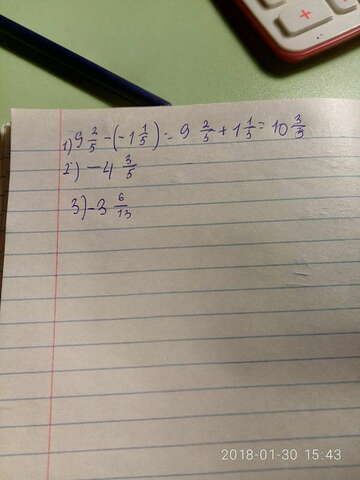 1) 9 2/5 - (-1 1/5) = 9 2/5 + 1 1/5 = 10 3/5
2) - 4 3/5
3) - 3 6/13
2018-01-30 15:43